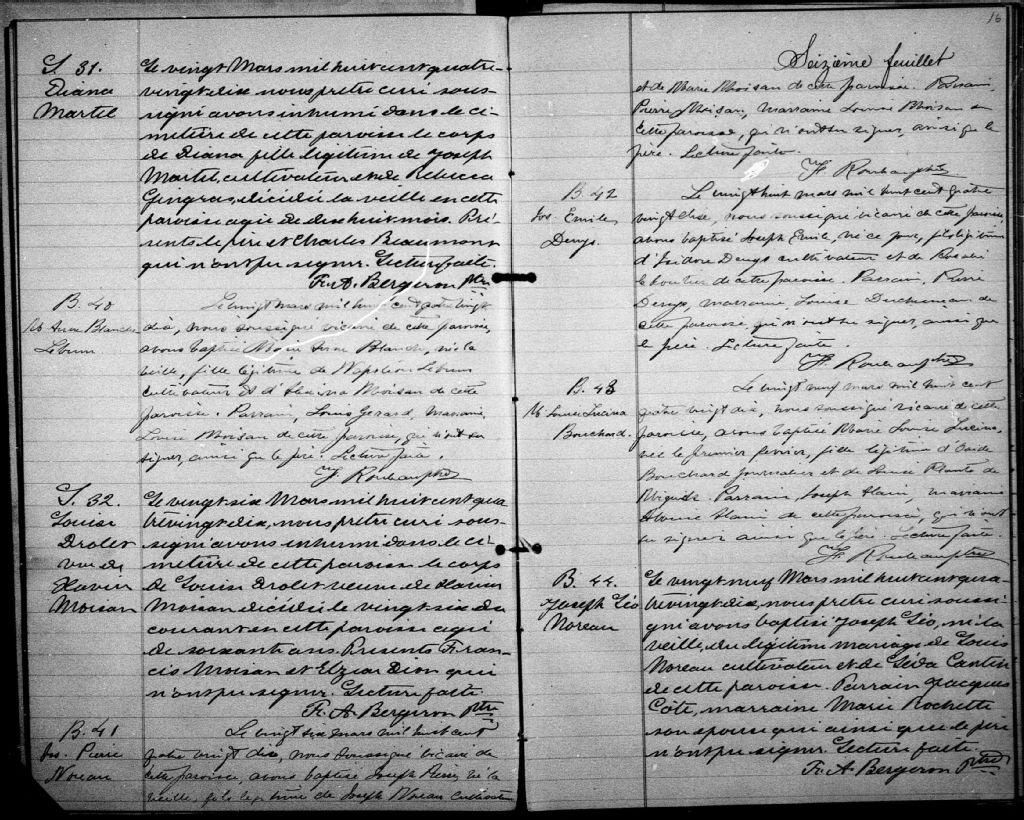 S. 31.
Diana
Martel
Le vingt Mars mil huit cent quatre-
vingt dix nous pretre curé sous-
signé avons inhumé dans le ci-
metière de cette paroisse le corps
de Diana fille légitime de Joseph
Martel, cultivateur et de Rebecca
Gingras, décédée la veille en cette
paroisse agée de dix huit mois. Pré-
sents le père et Charles Beaumont
qui n'ont pu signer. Lecture faite.
Fr. A. Bergeron ptre
B. 40
M. Anne Blanche
Lebrun
Le vingt mars mil huit cent quatre vingt
dix, nous soussigné vicaire de cette paroisse,
avons baptisé Marie Anne Blanche, née la
veille, fille légitime de Napoléon Lebrun
cultivateur et d' Moisan de cette
paroisse. Parrain, Louis Gerard, marraine,
Louise Moisan de cette paroisse, qui n'ont su
signer, ainsi que le père. Lecture faite.
ptre
S. 32.
Louise
Drolet
vve de
Flavien
Moisan
Le vingt six Mars mil huit cent qua
trevingt dix, nous pretre curé sous-
signé avons inhumé dans le ci-
metière de cette paroisse le corps
de Louise Drolet veuve de Flavien
Moisan décédée le vingt six du
courant en cette paroisse agée
de soixante ans. Presents Fran-
cis Moisan et Elzear Dion qui
n'ont pu signer. Lecture faite
Fr. A. Bergeron ptre
B. 41
Jos. Pierre
Noreau
Le vingt six mars mil huit cent
quatre vingt dix, nous soussigné vicaire de
cette paroisse, avons baptisé Joseph Pierre, né la
veille, fils légitime de Joseph Noreau cultivateur
16
Seizième feuillet
et de Marie Moisan de cette paroisse. Parrain,
Pierre Moisan, marraine Louise Moisan de
cette paroisse, qui n'ont su signer, ainsi que le
père. Lecture faite.
ptre
B. 42
Jos. Emile
Denys.
Le vingt huit mars mil huit cent quatre
vingt dix, nous soussigné vicaire de cette paroisse,
avons baptisé Joseph Emile, né ce jour, fils légitime
d'Isidore Denys cultivateur et de Rosalie
de cette paroisse. Parrain, Pierre
Denys, marraine, Louise Duchesneau de
cette paroisse, qui n'ont su signer, ainsi que
le père. Lecture faite.
ptre
B. 43
M. Louise Lucina
Bouchard.
Le vingt neuf mars mil huit cent
quatre vingt dix, nous soussigné vicaire de cette
paroisse, avons baptisé Marie Louise Lucina,
née le premier fevrier, fille légitime d'
Bouchard journalier et de Plante de
. Parrain, Joseph Alain, marraine
Alain de cette paroisse, qui n'ont
su signer ainsi que le père. Lecture faite.
ptre
B. 44.
Joseph Léo
Noreau
Le vingt neuf Mars mil huit cent qua
trevingt dix, nous pretre curé soussi-
gné avons baptisé Joseph Léo, né la
veille, du légitime mariage de Louis
Noreau cultivateur et de Léda Cantin
de cette paroisse. Parrain Jacques
Côté, marraine Marie Rochette
son épouse qui ainsi que le père
n'ont pu signer. Lecture faite.
Fr. A. Bergeron Ptre